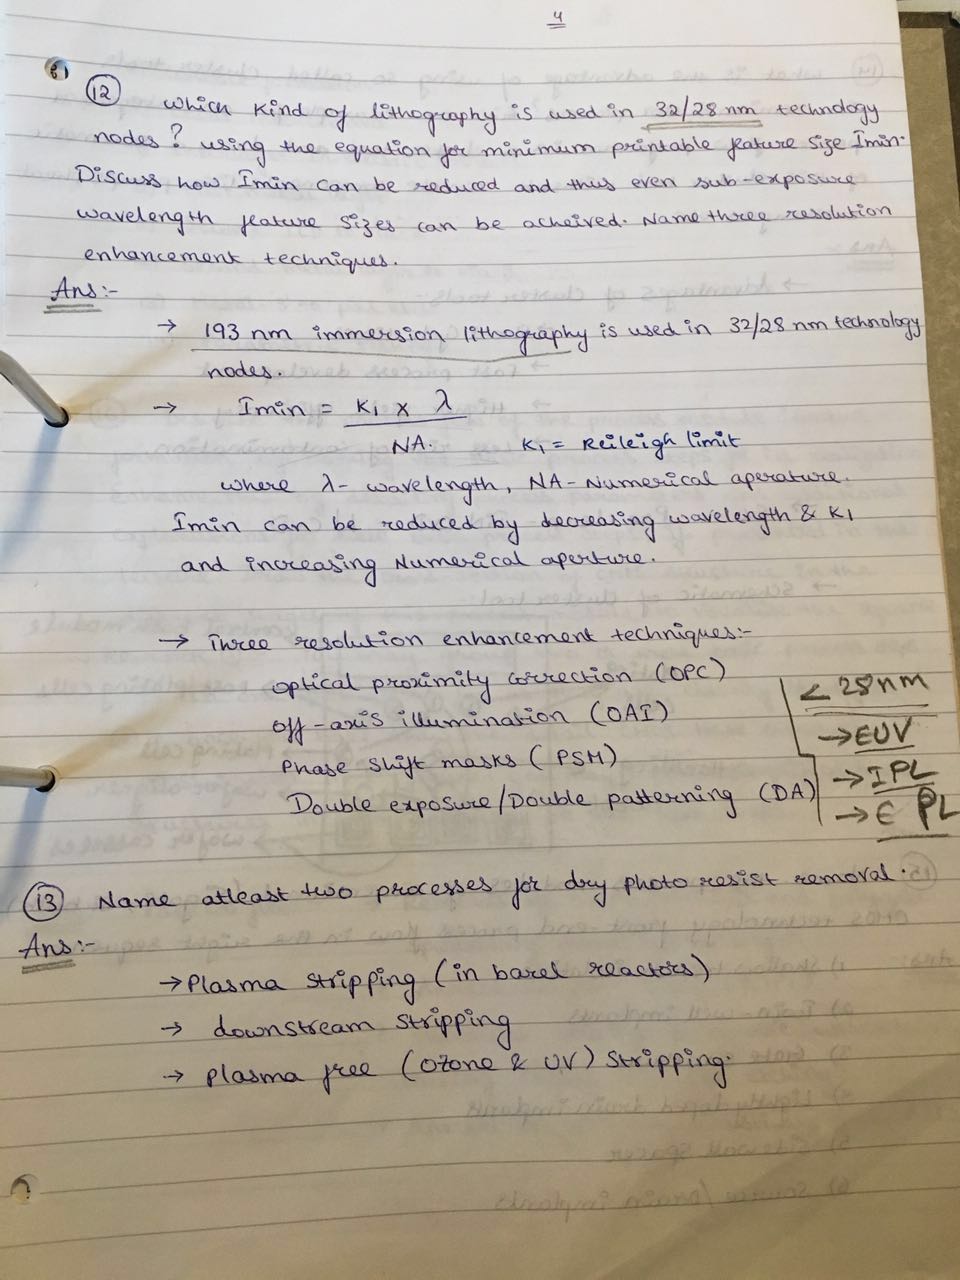 4
12 Which kind of lithography is used in 32/28 nm technology
nodes? using the equation for minimum printable feature size Imin.
Discuss how Imin can be reduced and thus even sub-exposure
wavelength feature sizes can be acheived. Name three resolution
enhancement techniques.
Ans:-
→ 193 nm immersion lithography is used in 32/28 nm technology
nodes.
→ Imin = K1 x λ
NA. K1 = Reileigh limit
where λ- wavelength, NA-Numerical aperature.
Imin can be reduced by decreasing wavelength & K1
and increasing Numerical aperture.
→ Three resolution enhancement techniques:-
optical proximity correction (OPC)
off-axis illumination (OAI)
Phase shift masks (PSM)
Double exposure/Double patterning (DA)
< 28nm
→ EUV
→ IPL
→ E PL
13 Name atleast two processes for dry photo resist removal.
Ans:-
→ Plasma stripping (in barel reactors)
→ downstream stripping
→ plasma free (Ozone & UV) stripping.